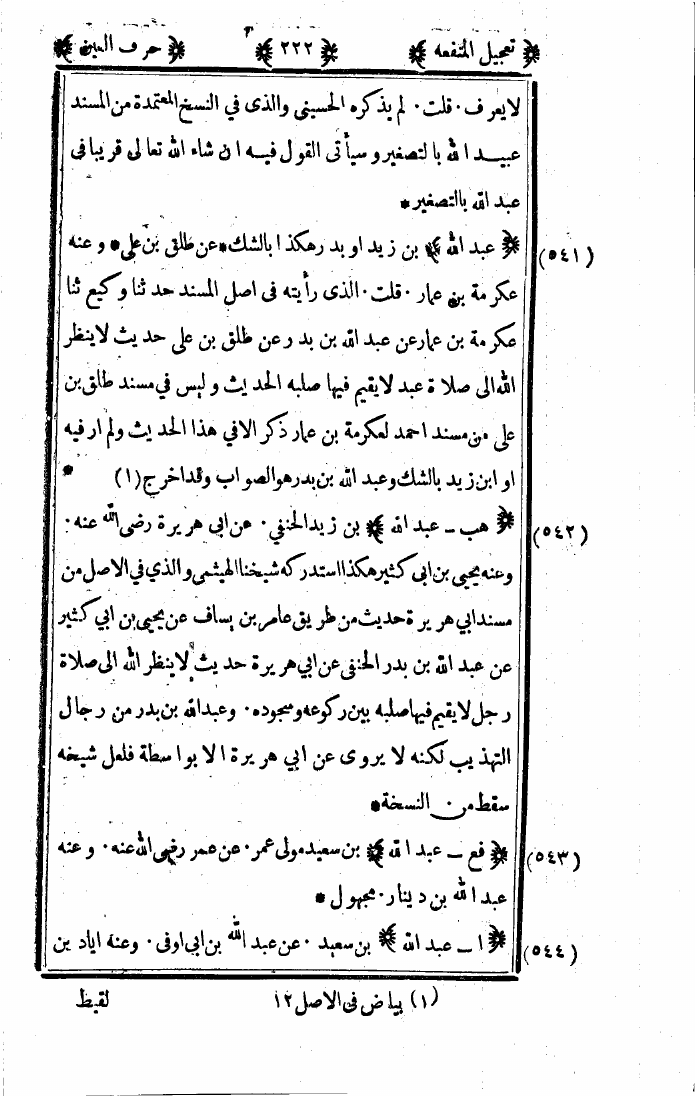 ﴿ تعجيل المنفعه ﴾ ﴿ ٢٢٢ ﴾ ﴿ حرف العين ﴾
لا يعرف · قلت · لم يذكره الحسينى والذى في النسخ المعتمدة من المسند
عبيد الله بالتصغير وسيأتى القول فيه ان شاء الله تعالى قريبا فى
عبد الله بالتصغير *
(٥٤١) ﴿ عبد الله ﴾ بن زيد او بدر هكذا بالشك * عن طلق بن على * وعنه
عكرمة بن عمار · قلت · الذى رأيته فى اصل المسند حدثنا وكيع ثنا
عكرمة بن عمار عن عبد الله بن بدر عن طلق بن على حديث لا ينظر
الله الى صلاة عبد لا يقيم فيها صلبه الحديث وليس في مسند طلق بن
على من مسند احمد لعكرمة بن عمار ذكر الا في هذا الحديث ولم ار فيه
او ابن زيد بالشك وعبد الله بن بدر هو الصواب وقد اخرج (١) *
(٥٤٢) ﴿ هب – عبد الله ﴾ بن زيد الحنفي · عن ابى هريرة رضى الله عنه ·
وعنه يحيى بن ابى كثير هكذا استدركه شيخنا الهيثمى والذي في الاصل من
مسند ابي هريرة حديث من طريق عامر بن يساف عن يحيى بن ابي كثير
عن عبد الله بن بدر الحنفى عن ابي هريرة حديث لا ينظر الله الى صلاة
رجل لا يقيم فيها صلبه بين ركوعه وسجوده · وعبد الله بن بدر من رجال
التهذيب لكنه لا يروى عن ابي هريرة الا بواسطة فلعل شيخه
سقط من النسخة *
(٥٤٣) ﴿ فع – عبد الله ﴾ بن سعيد مولى عمر · عن عمر رضى الله عنه · وعنه
عبد الله بن دينار · مجهول *
(٥٤٤) ﴿ ا – عبد الله ﴾ بن سعيد · عن عبد الله بن ابى اوفى · وعنه اياد بن
(١) بياض فى الاصل ١٢ لقيط